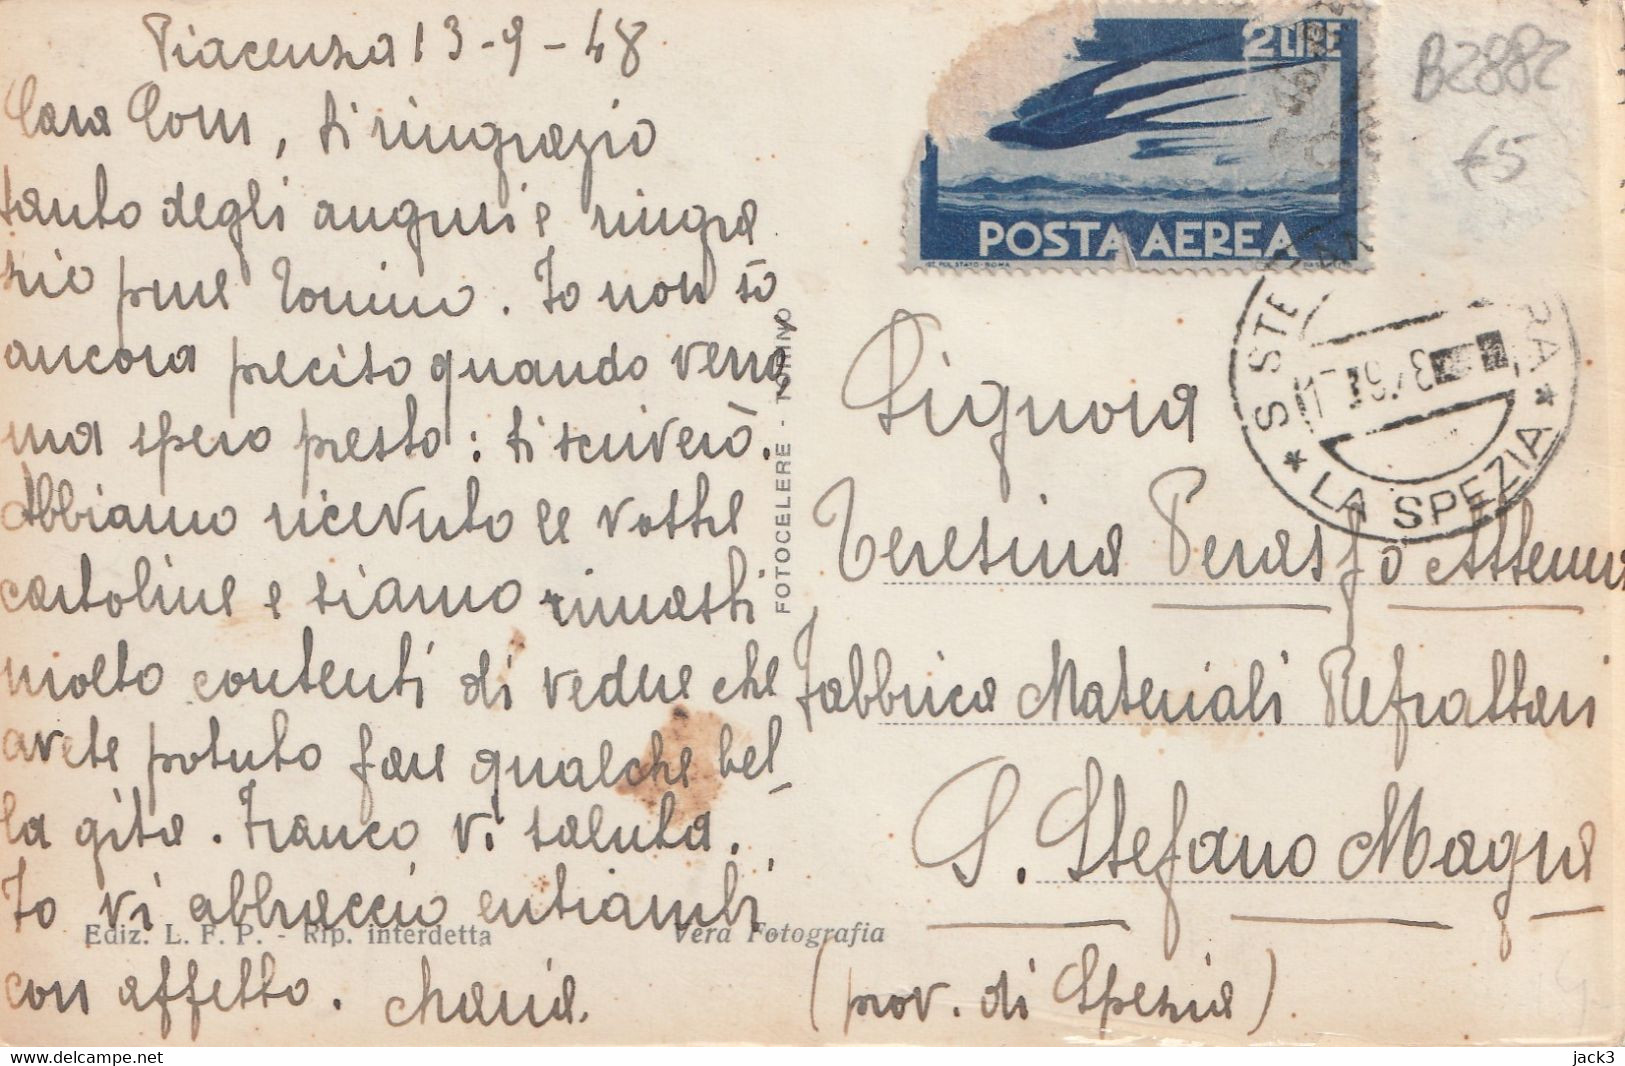 Piacenza 13-9-48
Cara Com, ti ringrazio
tanto degli auguri e ringra
zio pure Tonino. Io non so
ancora preciso quando verrò
ma spero presto: ti scriverò.
Abbiamo ricevuto le vostre
cartoline e siamo rimasti
molto contenti di vedere che
avete potuto fare qualche bel-
la gita. Franco vi saluta.
Io vi abbraccio entrambi
con affetto. Maria.
Ediz. L. F. P. - Rip. interdetta
Vera Fotografia
FOTOCELERE - TORINO
2 LIRE
POSTA AEREA
IST. POL. STATO - ROMA
B2882
€5
S STE
RA
* LA SPEZIA *
Signora
Teresina
Fabbrica Materiali Refrattari
S. Stefano Magra
(prov. di Spezia)
jack3